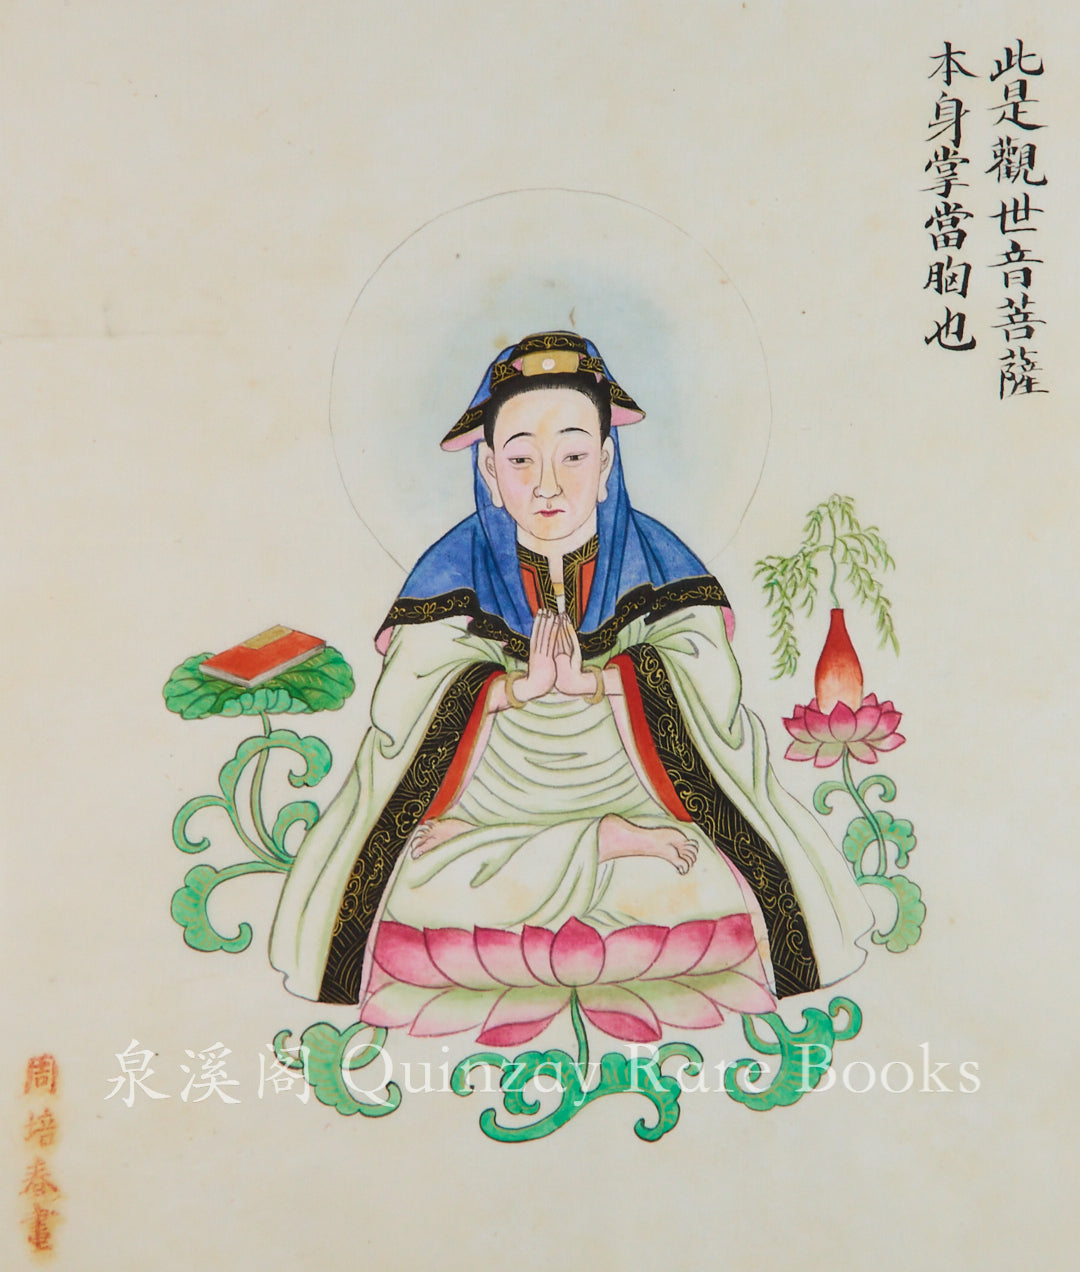 此是觀世音菩薩
本身掌當胸也
周培春畫
泉溪阁 Quinzay Rare Books